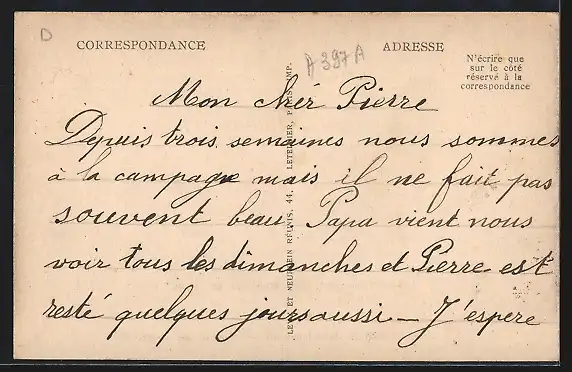 D
CORRESPONDANCE
A 397 A
ADRESSE
N'écrire que
sur le côté
réservé à la
correspondance
Mon chér Pierre
Depuis trois semaines nous sommes
à la campagne mais il ne fait pas
souvent beau. Papa vient nous
voir tous les dimanches et Pierre est
resté quelques jours aussi — J'espere
LEVY ET NEURDEIN RÉUNIS, 44, LETELLIER, PARIS IMP.